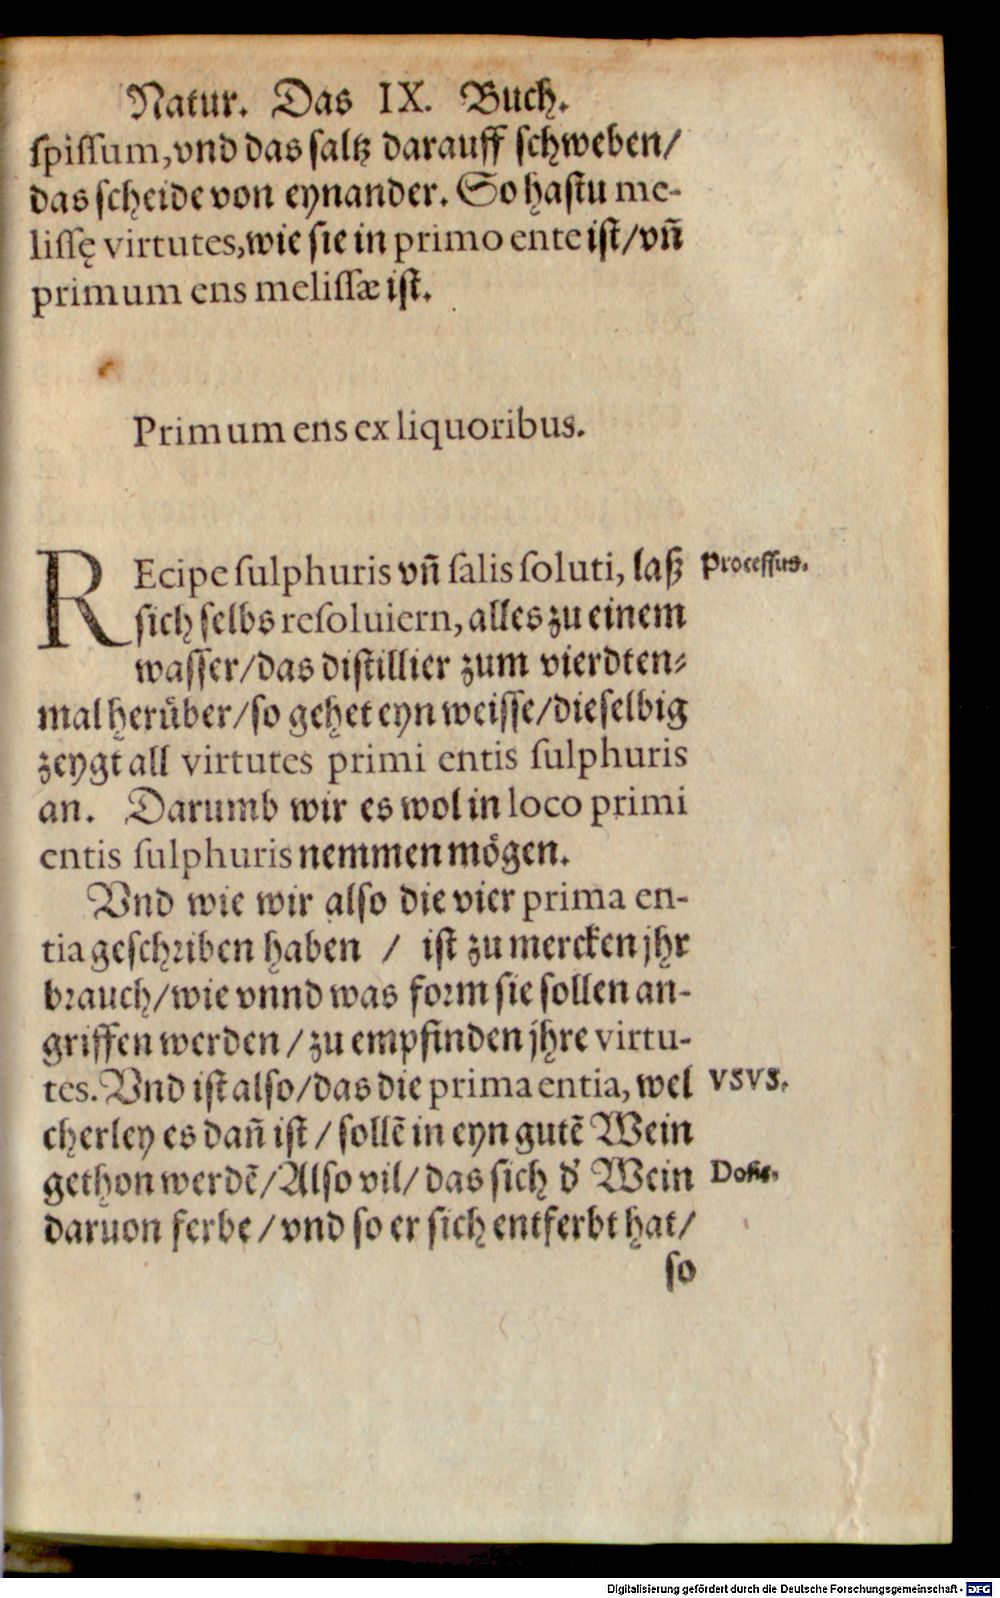 Natur. Das IX. Buch.
spissum, vnd das saltz darauff schweben/
das scheide von eynander. So hastu me-
lissę virtutes, wie sie in primo ente ist/ vñ
primum ens melissæ ist.
Primum ens ex liquoribus.
REcipe sulphuris vñ salis soluti, laß
sich selbs resoluiern, alles zu einem
wasser/ das distillier zum vierdten-
mal herüber/ so gehet eyn weisse/ dieselbig
zeygt all virtutes primi entis sulphuris
an. Darumb wir es wol in loco primi
entis sulphuris nemmen mögen.
Vnd wie wir also die vier prima en-
tia geschriben haben / ist zu mercken jhr
brauch/ wie vnnd was form sie sollen an-
griffen werden / zu empfinden jhre virtu-
tes. Vnd ist also/ das die prima entia, wel
cherley es dañ ist / sollē in eyn gutē Wein
gethon werdē/ Also vil/ das sich d' Wein
daruon ferbe / vnd so er sich entferbt hat/
so
Processus.
VSVS.
Dosis.
Digitalisierung gefördert durch die Deutsche Forschungsgemeinschaft - DFG